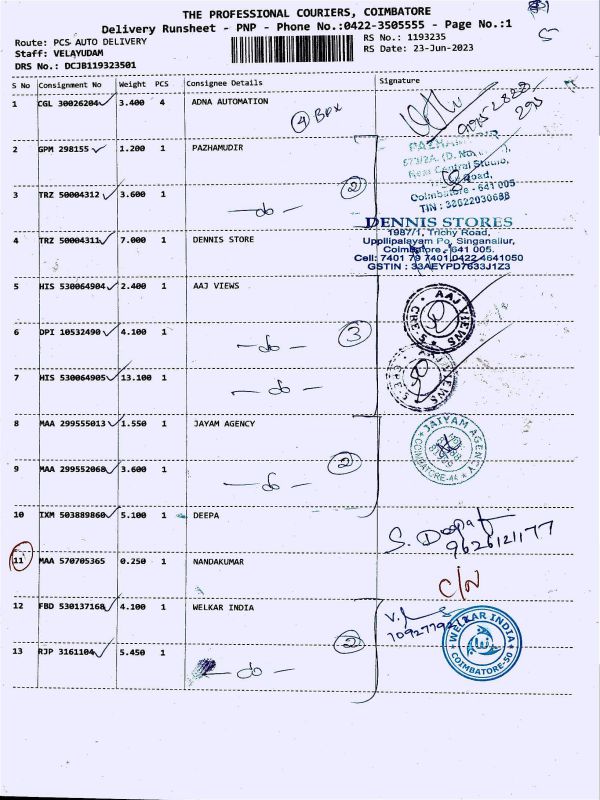 THE PROFESSIONAL COURIERS, COIMBATORE
Delivery Runsheet - PNP - Phone No.:0422-3505555 - Page No.:1
Route: PCS AUTO DELIVERY
Staff: VELAYUDAM
DRS No.: DCJB119323501
RS No.: 1193235
RS Date: 23-Jun-2023
S No Consignment No Weight PCS Consignee Details Signature
1 CGL 30026204 3.400 4 ADNA AUTOMATION
4 Box
2 GPM 298155 1.200 1 PAZHAMUDIR
3 TRZ 50004312 3.600 1
- do - 2
Coimbatore - 641 005
DENNIS STORES
1987/1, Trichy Road,
Uppilipalayam Po, Singanallur,
Coimbatore - 641 005.
Cell: 7401 79 7401 0422 4641050
GSTIN : 33AEYPD7633J1Z3
4 TRZ 50004311 7.000 1 DENNIS STORE
5 HIS 530064904 2.400 1 AAJ VIEWS
AAJ VIEWS
6 DPI 10532490 4.100 1
- do - 3
7 HIS 530064905 13.100 1
- do -
8 MAA 299555013 1.550 1 JAYAM AGENCY
JAIYAM AGENCY
COIMBATORE-44
9 MAA 299552068 3.600 1
- do - 2
10 IXM 503889860 5.100 1 DEEPA
S. Deepa
9626121177
11 MAA 570705365 0.250 1 NANDAKUMAR
C/N
12 FBD 530137168 4.100 1 WELKAR INDIA
WELKAR INDIA
COIMBATORE-50
13 RJP 3161104 5.450 1
- do - 2